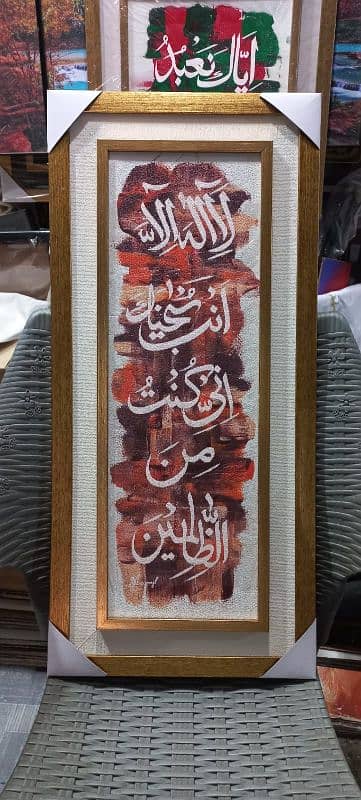 اِيَّاكَ نَعْبُدُ
لَاۤ اِلٰهَ اِلَّاۤ
اَنْتَ سُبْحٰنَكَ
اِنِّیْ كُنْتُ
مِنَ
الظّٰلِمِيْنَ